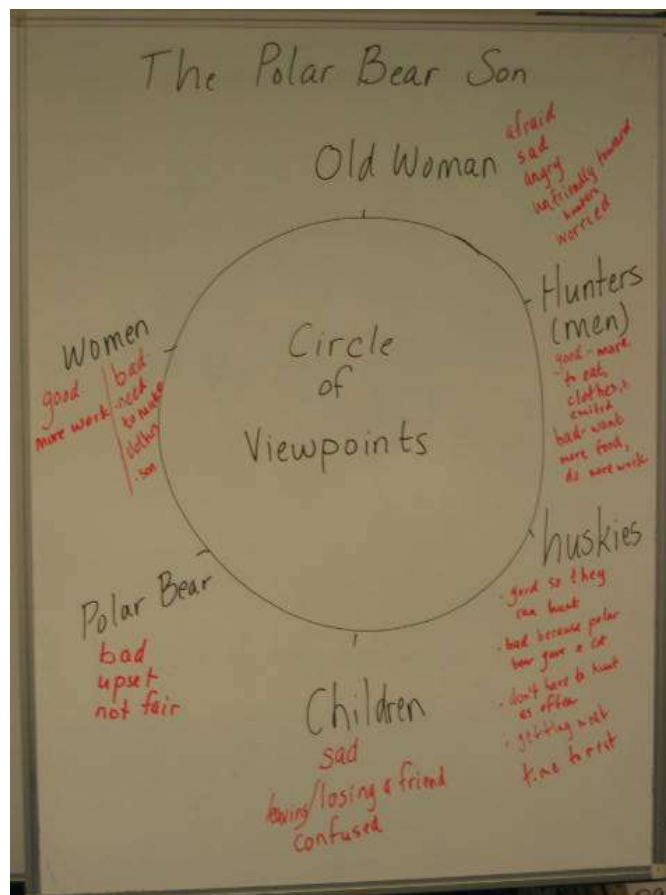 The Polar Bear Son
Old Woman
afraid
sad
angry
unfriendly toward
hunters
worried
Hunters
(men)
good - more
to eat,
clothes,
bad - want
more food,
do more work
huskies
· good so they
can hunt
· bad because polar
bear gave a
· don't have to hunt
as often
· getting
time to rest
Children
sad
leaving/losing a friend
confused
Polar Bear
bad
upset
not fair
Women
good
more work
bad
· need
to make
clothes
· son
Circle
of
Viewpoints